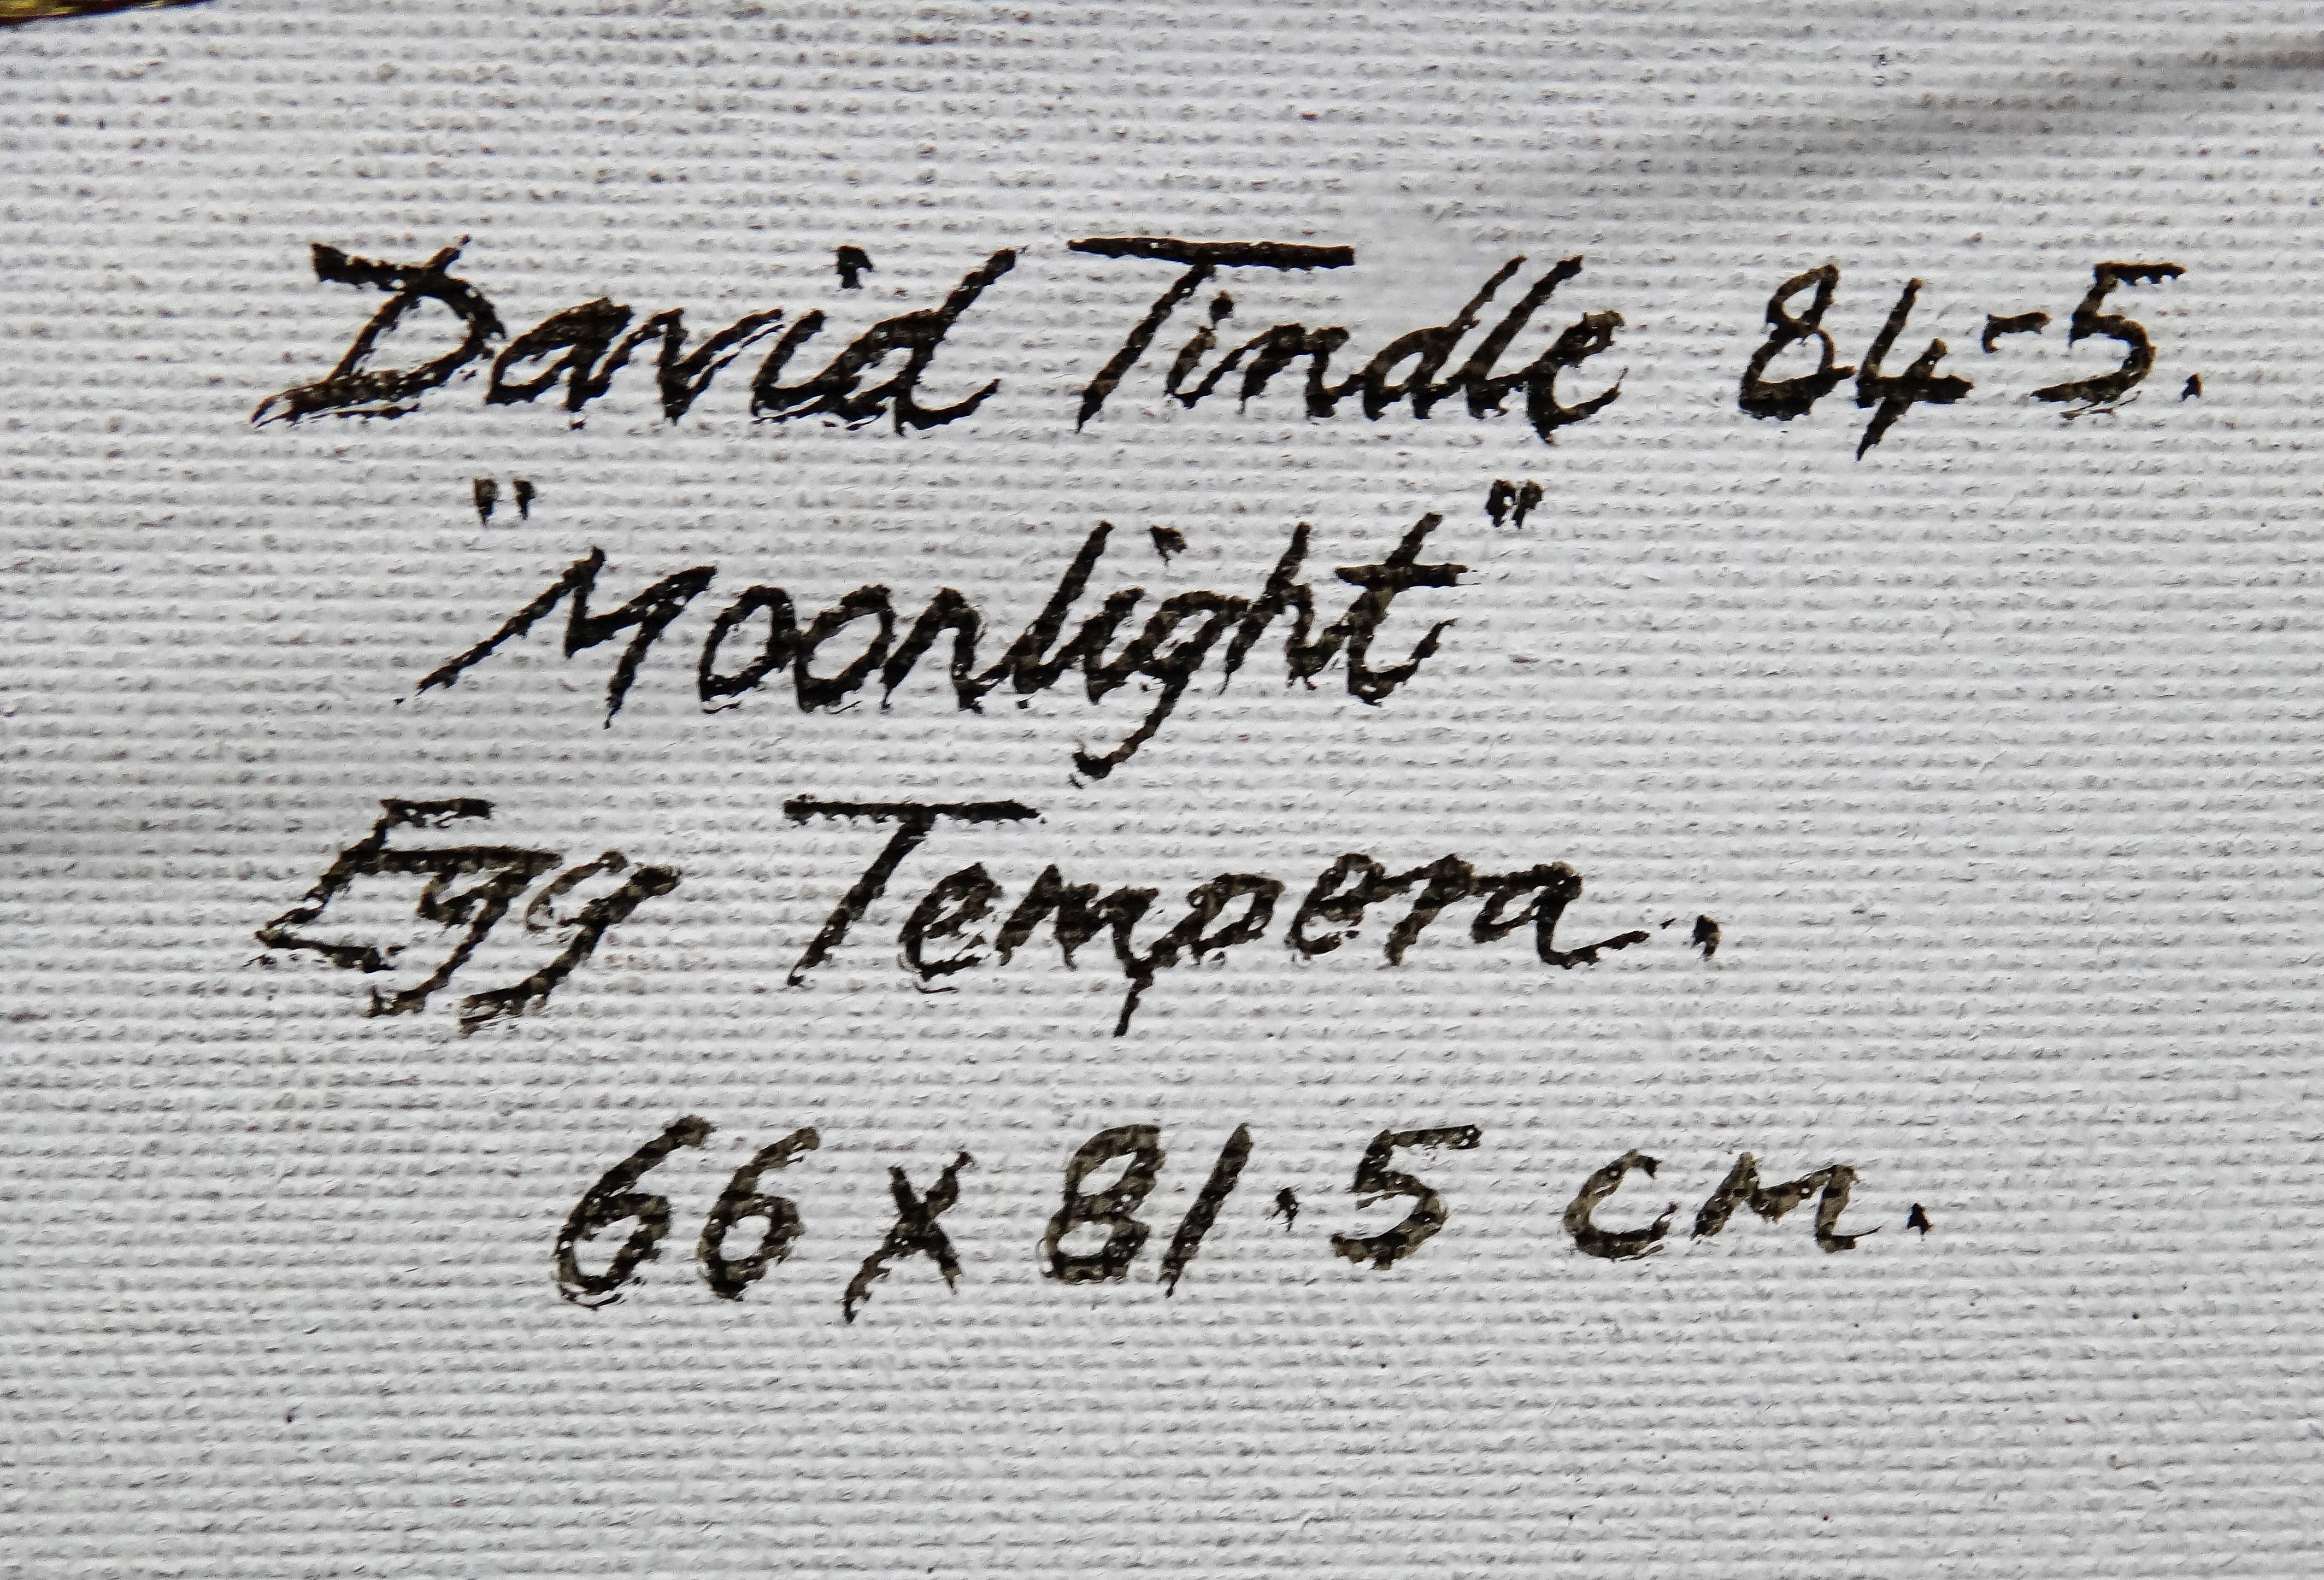 David Tindle 84-5.
"Moonlight"
Egg Tempera.
66 x 81·5 cm.